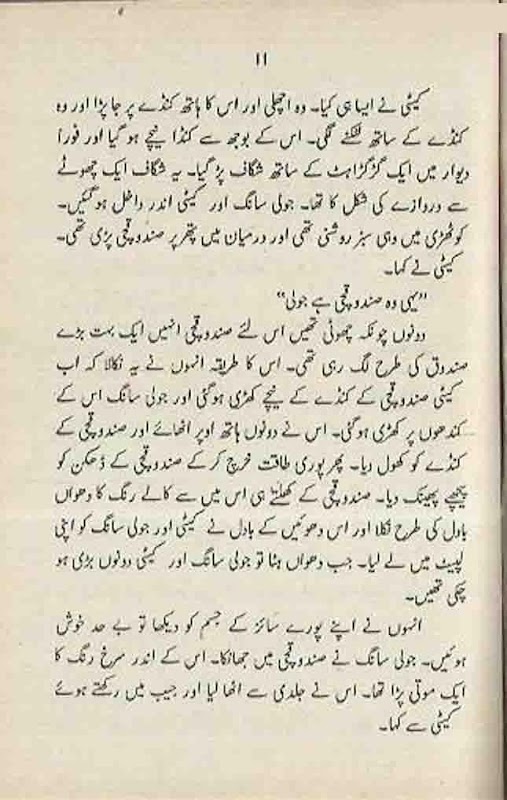 ۱۱
کیٹی نے ایسا ہی کیا۔ وہ اچھلی اور اس کا ہاتھ کنڈے پر جا پڑا اور وہ
کنڈے کے ساتھ لٹکنے لگی۔ اس کے بوجھ سے کنڈا نیچے ہو گیا اور فوراً
دیوار میں ایک گڑگڑاہٹ کے ساتھ شگاف پڑ گیا۔ یہ شگاف ایک چھوٹے
سے دروازے کی شکل کا تھا۔ جولی سانگ اور کیٹی اندر داخل ہو گئیں۔
کوٹھڑی میں وہی سبز روشنی تھی اور درمیان میں پتھر پر صندوقچی پڑی تھی۔
کیٹی نے کہا۔
”یہی وہ صندوقچی ہے جولی“
دونوں چونکہ چھوٹی تھیں اس لئے صندوقچی انہیں ایک بہت بڑے
صندوق کی طرح لگ رہی تھی۔ اس کا طریقہ انہوں نے یہ نکالا کہ اب
کیٹی صندوقچی کے کنڈے کے نیچے کھڑی ہو گئی اور جولی سانگ اس کے
کندھوں پر کھڑی ہو گئی۔ اس نے دونوں ہاتھ اوپر اٹھائے اور صندوقچی کے
کنڈے کو کھول دیا۔ پھر پوری طاقت خرچ کر کے صندوقچی کے ڈھکن کو
پیچھے پھینک دیا۔ صندوقچی کے کھلتے ہی اس میں سے کالے رنگ کا دھواں
بادل کی طرح نکلا اور اس دھوئیں کے بادل نے کیٹی اور جولی سانگ کو اپنی
لپیٹ میں لے لیا۔ جب دھواں ہٹا تو جولی سانگ اور کیٹی دونوں بڑی ہو
چکی تھیں۔
انہوں نے اپنے پورے سائز کے جسم کو دیکھا تو بے حد خوش
ہوئیں۔ جولی سانگ نے صندوقچی میں جھانکا۔ اس کے اندر سرخ رنگ کا
ایک موتی پڑا تھا۔ اس نے جلدی سے اٹھا لیا اور جیب میں رکھتے ہوئے
کیٹی سے کہا۔